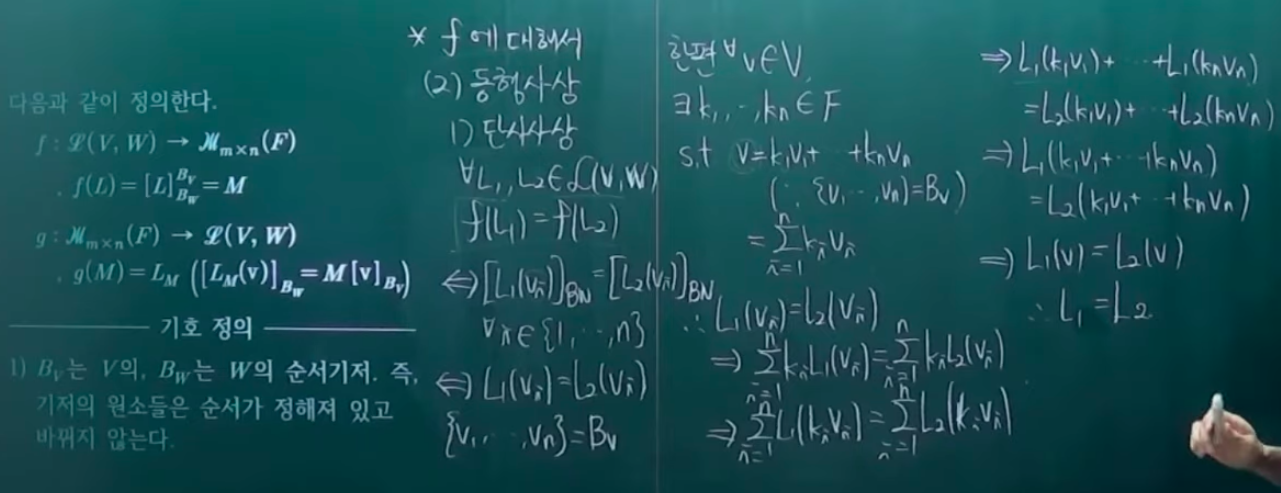 다음과 같이 정의한다.
f : ℒ(V, W) → ℳ_{m×n}(F)
. f(L) = [L]^{B_V}_{B_W} = M
g : ℳ_{m×n}(F) → ℒ(V, W)
. g(M) = L_M ([L_M(v)]_{B_W} = M[v]_{B_V})
기호 정의
1) B_V는 V의, B_W는 W의 순서기저. 즉,
기저의 원소들은 순서가 정해져 있고
바뀌지 않는다.
* f에 대해서
(2) 동형사상
1) 단사사상
∀L₁, L₂ ∈ ℒ(V, W)
f(L₁) = f(L₂)
⇔ [L₁(v_i)]_{BW} = [L₂(v_i)]_{BW}
∀i ∈ {1, ⋯, n}
⇔ L₁(v_i) = L₂(v_i)
{v₁, ⋯, v_n} = B_V
한편 ∀v ∈ V,
∃k₁, ⋯, k_n ∈ F
s.t v = k₁v₁ + ⋯ + k_nv_n
(∵ {v₁, ⋯, v_n} = B_V)
= Σ_{i=1}^{n} k_iv_i
∴ L₁(v_i) = L₂(v_i)
⇒ Σ_{i=1}^{n} k_iL₁(v_i) = Σ_{i=1}^{n} k_iL₂(v_i)
⇒ Σ_{i=1}^{n} L₁(k_iv_i) = Σ_{i=1}^{n} L₂(k_iv_i)
⇒ L₁(k₁v₁) + ⋯ + L₁(k_nv_n)
= L₂(k₁v₁) + ⋯ + L₂(k_nv_n)
⇒ L₁(k₁v₁ + ⋯ + k_nv_n)
= L₂(k₁v₁ + ⋯ + k_nv_n)
⇒ L₁(v) = L₂(v)
∴ L₁ = L₂